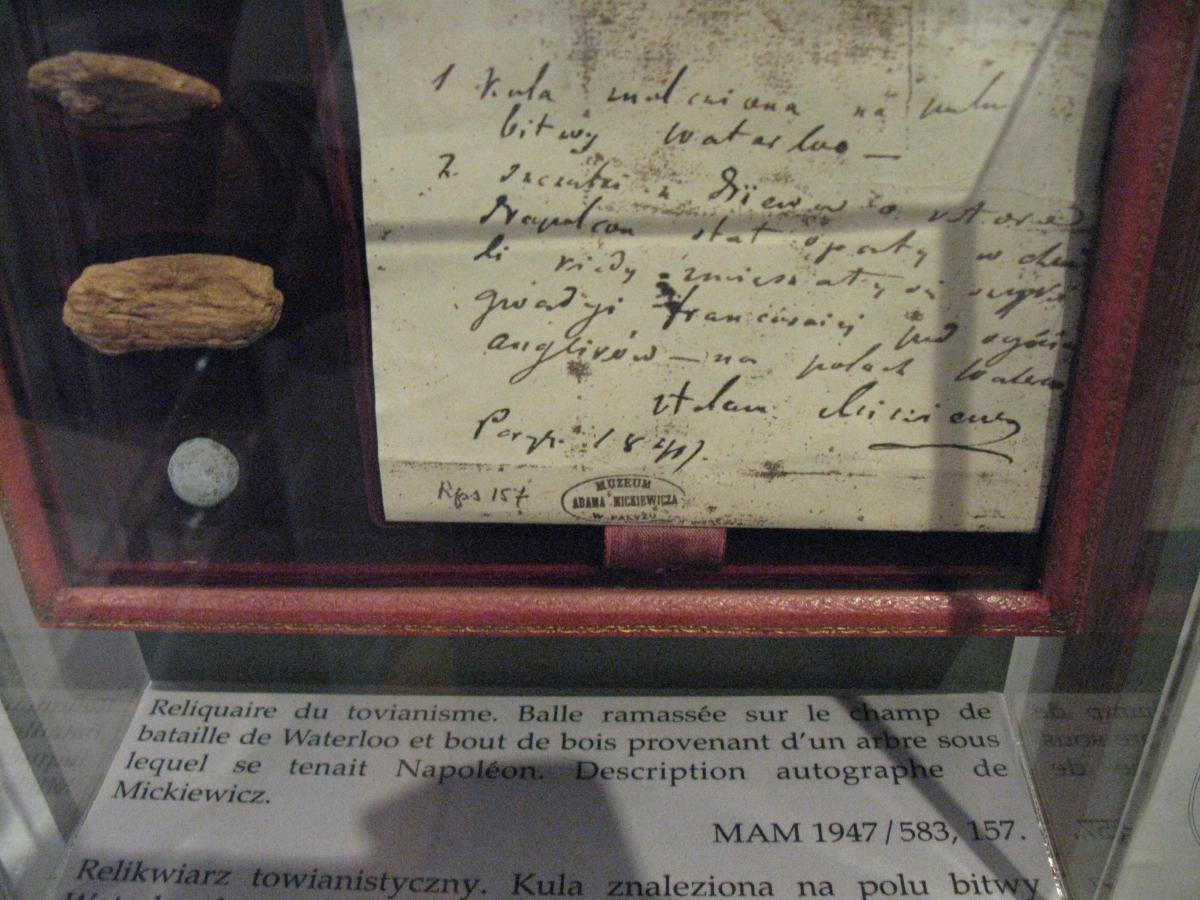 1 Kula znaleziona na polu
bitwy Waterloo —
2. Szczątki z Drzewa o które
Napoleon stał oparty w chwi
li kiedy zmieszały się szyki
gwardyi francuskiej pod ogniem
anglików — na polach Waterloo
Adam Mickiewicz
Paryż. 1841.
Rps 157
MUZEUM
ADAMA MICKIEWICZA
W PARYŻU
Reliquaire du tovianisme. Balle ramassée sur le champ de
bataille de Waterloo et bout de bois provenant d'un arbre sous
lequel se tenait Napoléon. Description autographe de
Mickiewicz.
MAM 1947/583, 157.
Relikwiarz towianistyczny. Kula znaleziona na polu bitwy